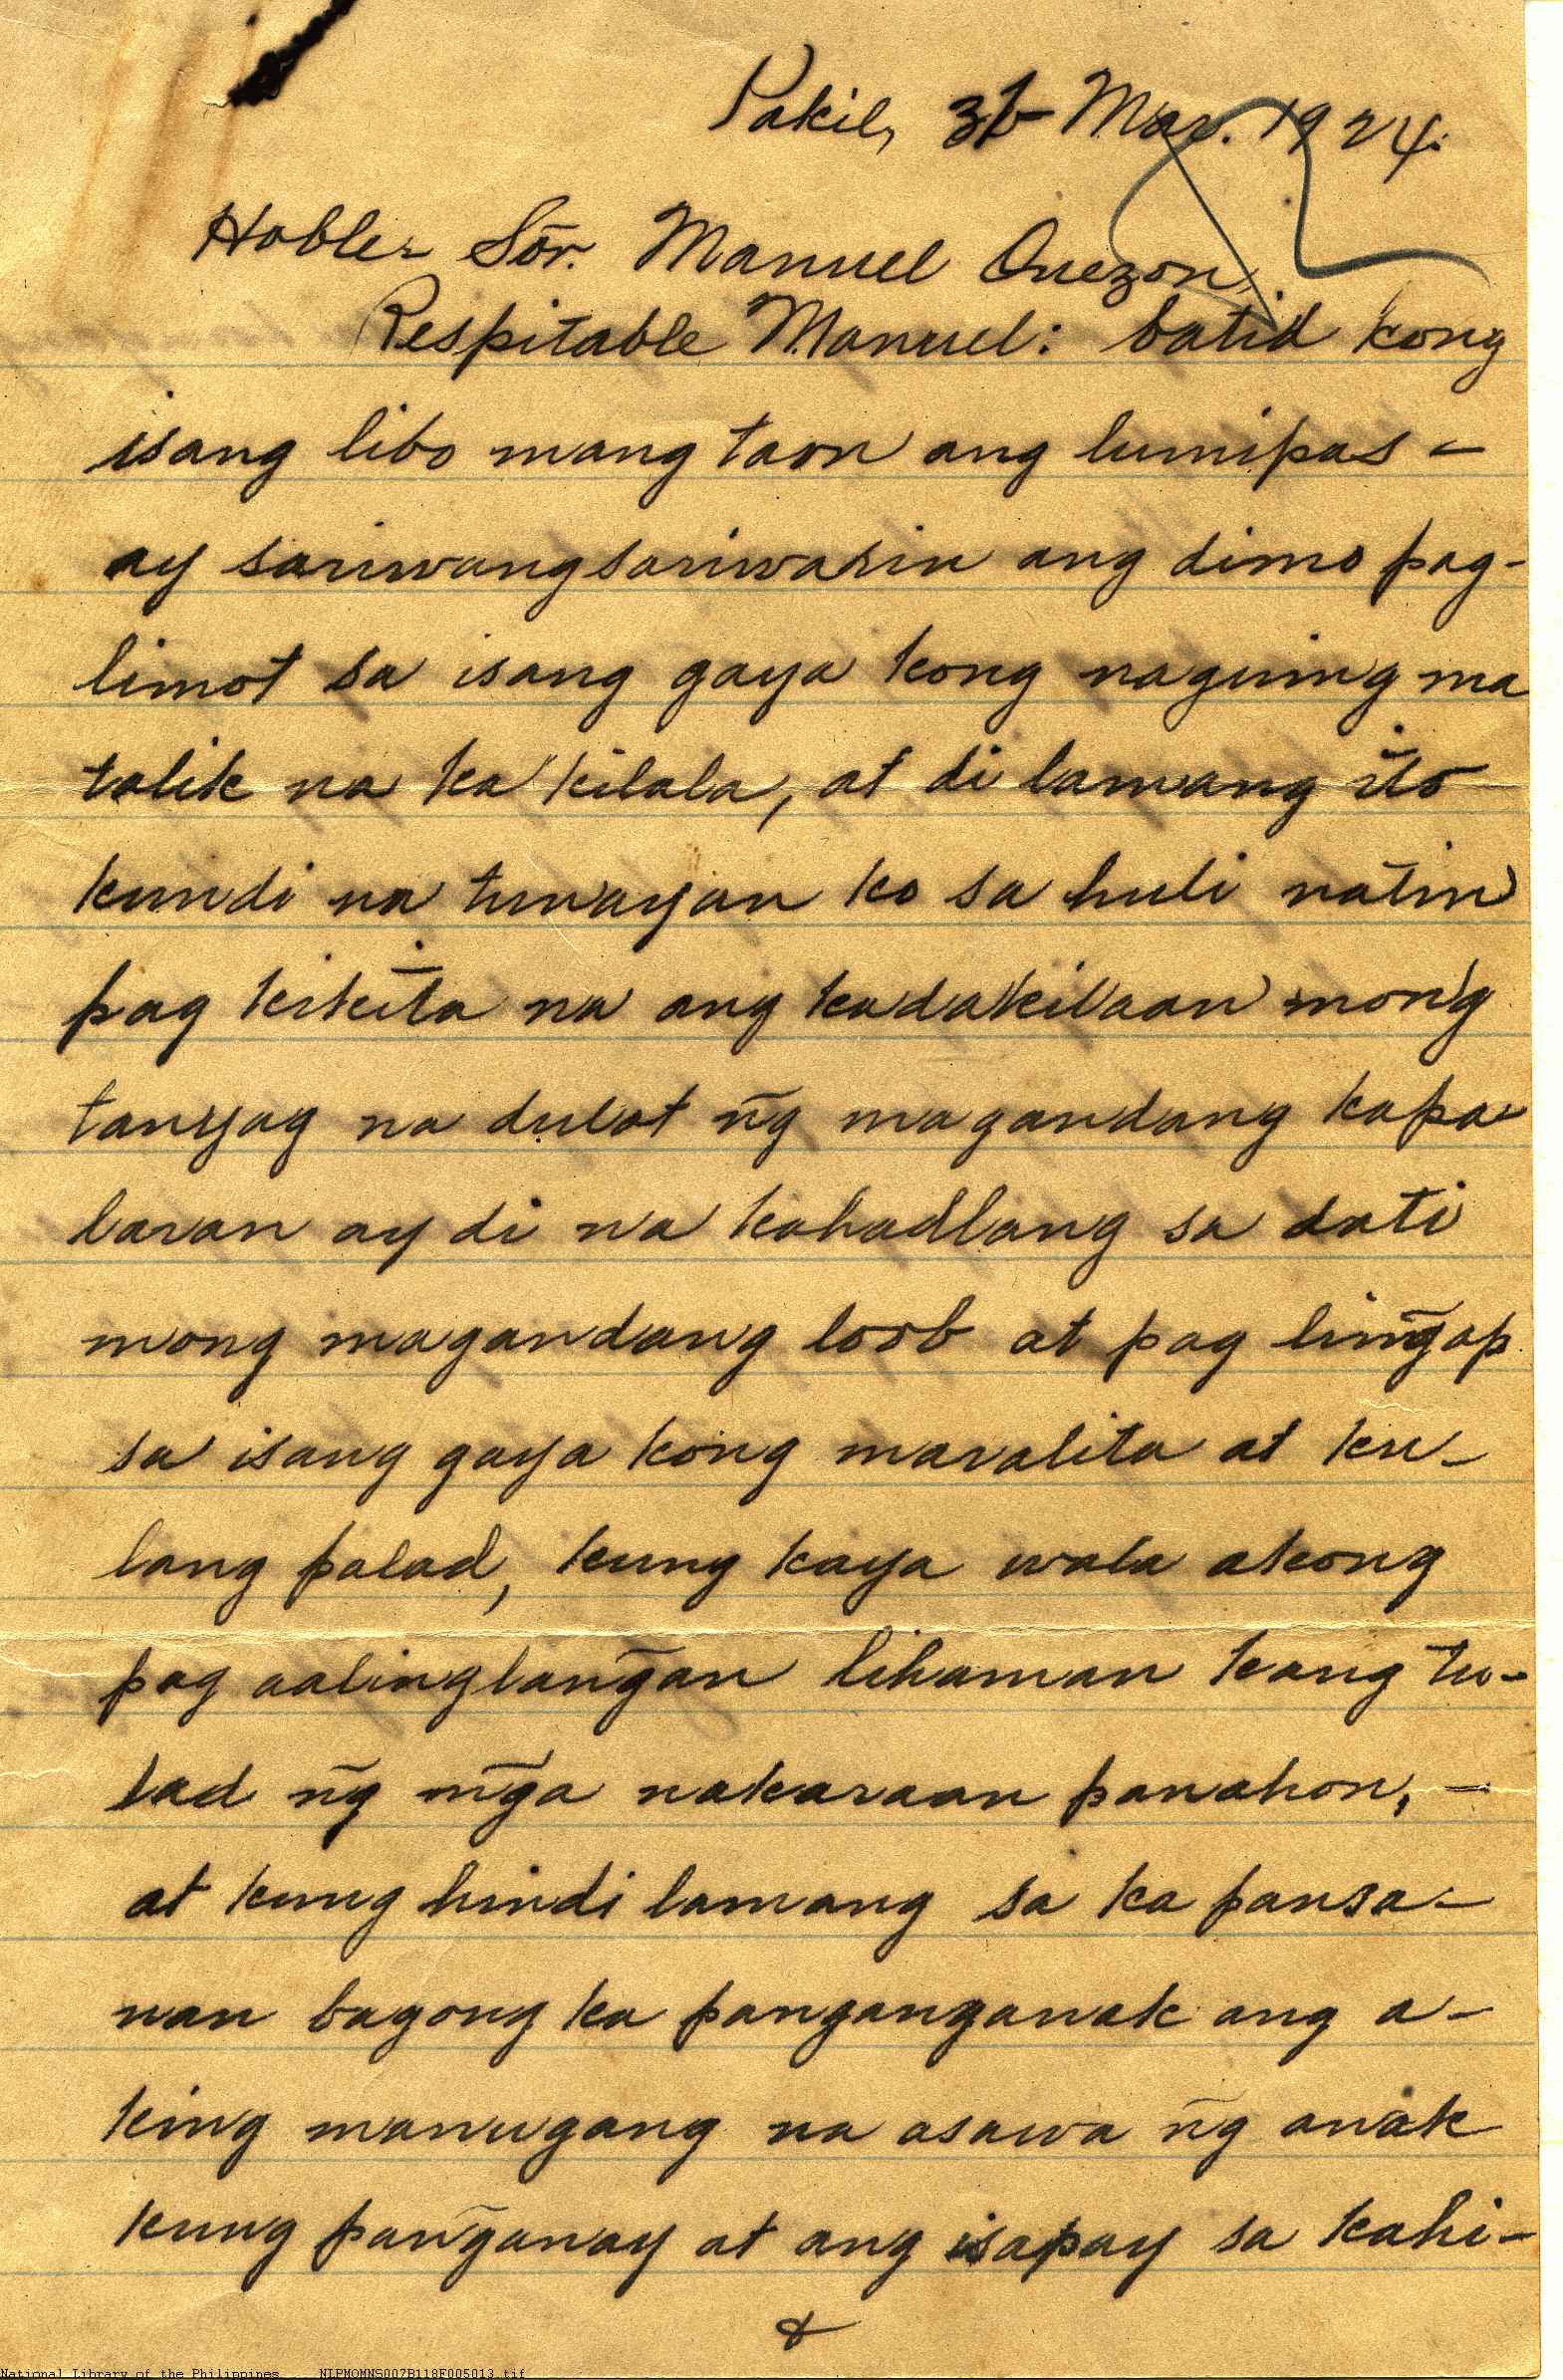 Pakil, 31 Mar. 1924.
Hoble. Sõr. Manuel Quezon,
Respitable Manuel: batid kong
isang libo mang taon ang lumipas -
ay sariwangsariwarin ang dimo pag-
limot sa isang gaya kong naguing ma
talik na ka kilala, at di lamang ito
kundi na tunayan ko sa huli natin
pag kikita na ang kadakilaan mong
tanyag na dulot n͠g magandang kapa-
laran ay di na kahadlang sa dati
mong magandang loob at pag lin͠gap
sa isang gaya kong maralita at ku-
lang palad, kung kaya wala akong
pag aalinglan͠gan lihaman kang tu-
lad n͠g m͠ga nakaraan panahon, -
at kung hindi lamang sa ka pansa-
nan bagong ka panganganak ang a-
king manugang na asawa n͠g anak
kung pan͠ganay at ang isapay sa kahi-
National Library of the Philippines NLPMOMNS007B118F005013.tif